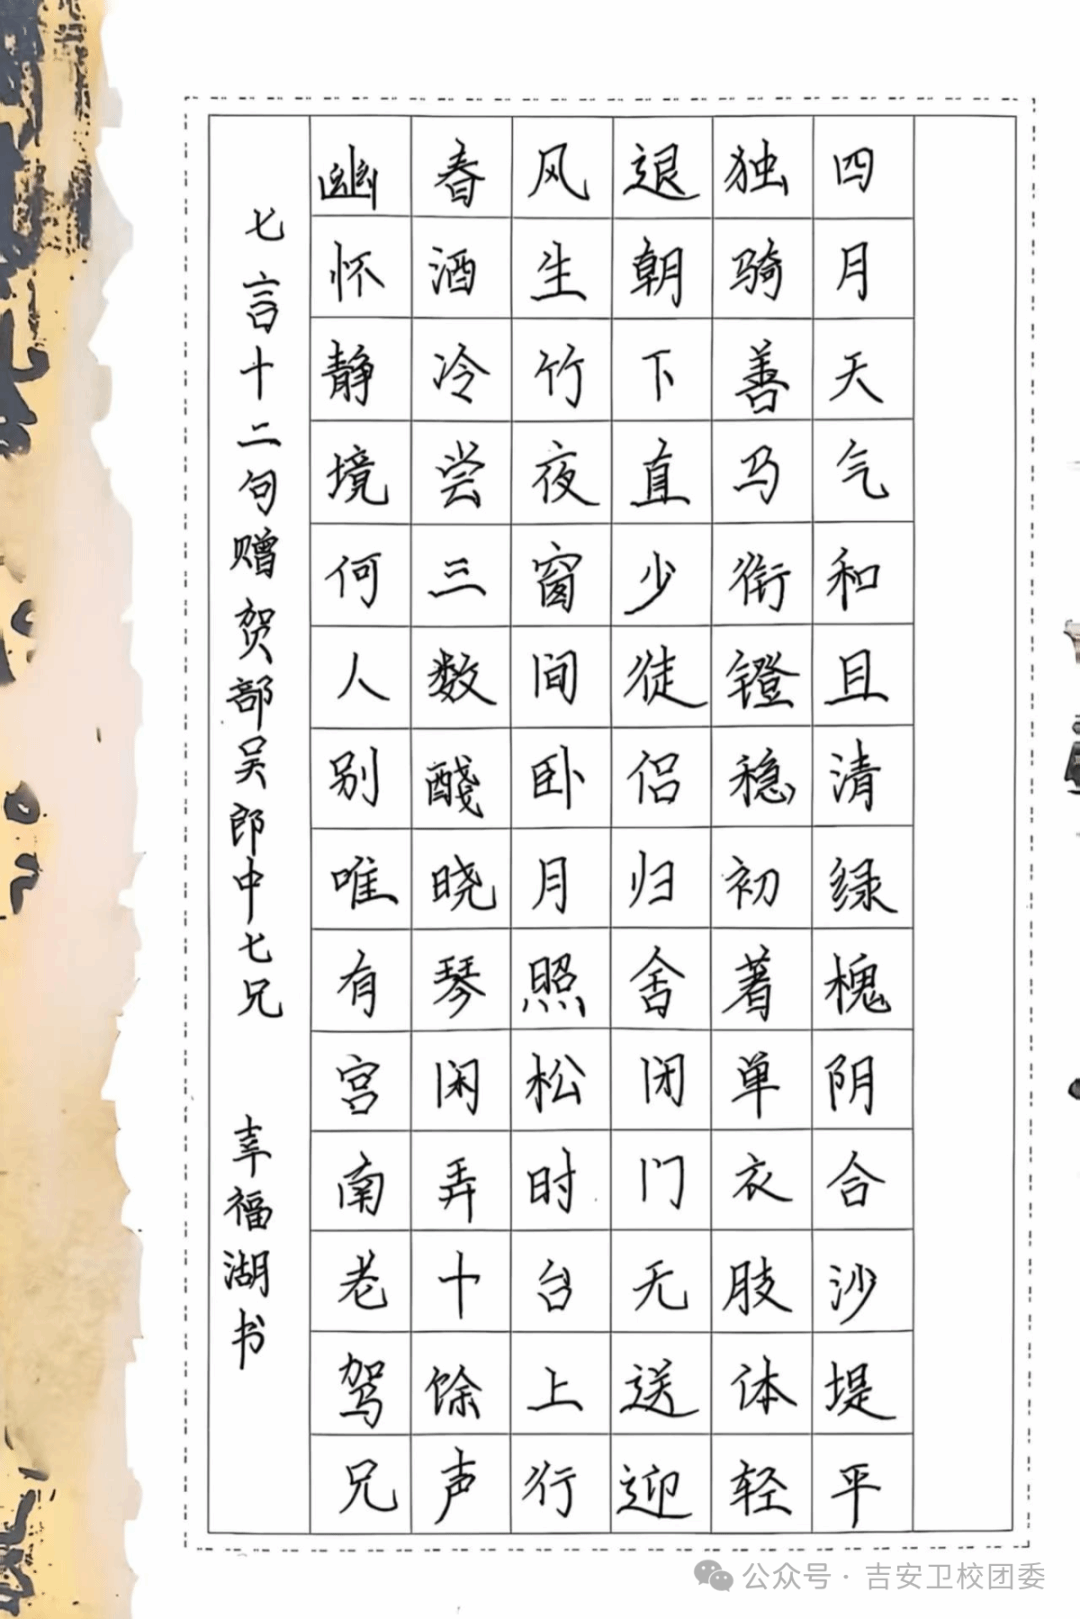 四月天气和且清绿槐阴合沙堤平
独骑善马衔镫稳初著单衣肢体轻
退朝下直少徒侣归舍闭门无送迎
风生竹夜窗间卧月照松时台上行
春酒冷尝三数醆晓琴闲弄十馀声
幽怀静境何人别唯有宫南老驾兄
七言十二句赠贺部吴郎中七兄 幸福湖书
公众号 · 吉安卫校团委